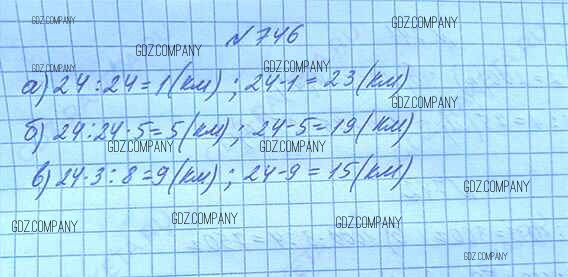 GDZ.COMPANY
№746
GDZ.COMPANY
GDZ.COMPANY
GDZ.COMPANY
GDZ.COMPANY
а) 24 : 24 = 1 (км) ; 24 - 1 = 23 (км)
GDZ.COMPANY
б) 24 : 24 · 5 = 5 (км) ; 24 - 5 = 19 (км)
GDZ.COMPANY
GDZ.COMPANY
в) 24 · 3 : 8 = 9 (км) ; 24 - 9 = 15 (км)
GDZ.COMPANY
GDZ.COMPANY
GDZ.COMPANY
GDZ.COMPANY